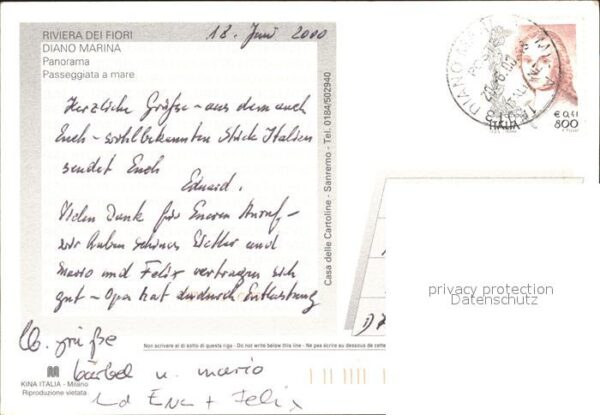 RIVIERA DEI FIORI
DIANO MARINA
Panorama
Passeggiata a mare
18. Juni 2000
Herzliche Grüße – aus dem auch
Euch – wohlbekannten Stück Italien
sendet Euch
Eduard.
Vielen Dank für Eueren Anruf –
wir haben schönes Wetter und
Mario und Felix vertragen sich
gut – Opa hat dadurch Entlastung
Lb. grüße
bärbel u. mario
und + Felix
Casa delle Cartoline - Sanremo - Tel. 0184/502940
Non scrivere al di sotto di questa riga - Do not write below this line - Ne pas écrire au dessous de cette
KINA ITALIA - Milano
Riproduzione vietata
DIANO
ITALIA
€ 0,41
800
privacy protection
Datenschutz